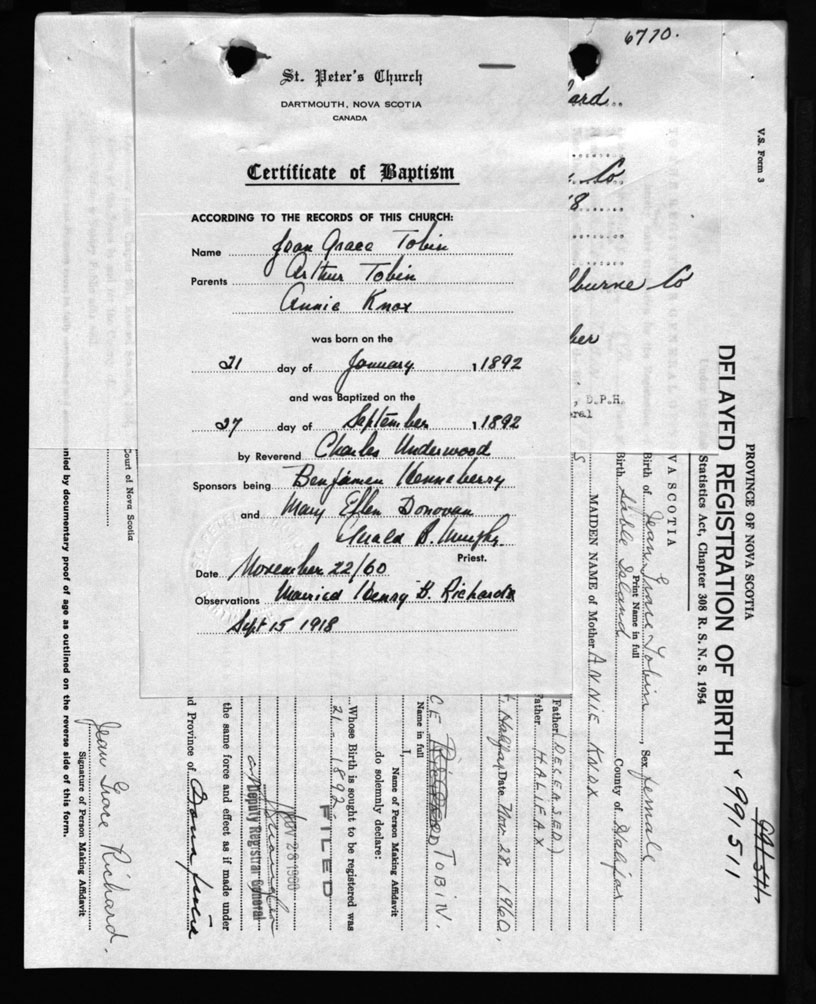 6770.
St. Peter's Church
DARTMOUTH, NOVA SCOTIA
CANADA
Certificate of Baptism
ACCORDING TO THE RECORDS OF THIS CHURCH:
Name Joan Grace Tobin
Parents Arthur Tobin
Annie Knox
was born on the
21 day of January 1892
and was Baptized on the
27 day of September 1892
by Reverend Charles Underwood
Sponsors being Benjamen Henneberry
and Mary Ellen Donovan
B. Murphy
Priest.
Date November 22/60
Observations Married Henry Richards
Sept 15 1918
ard
Co
8
burne Co
ber
, D.P.H.
ral
V.S. Form 3
PROVINCE OF NOVA SCOTIA
DELAYED REGISTRATION OF BIRTH
Statistics Act, Chapter 308 R. S. N. S. 1954
991511
VA SCOTIA
Birth of Jean Grace Tobin, Sex female
Print Name in full
Birth Sable Island County of Halifax
MAIDEN NAME of Mother ANNIE KNOX
Father (DECEASED)
ather HALIFAX
Halifax Date Nov. 28. 1960.
CE TOBIN.
Name in full
I,
Name of Person Making Affidavit
do solemnly declare:
Whose Birth is sought to be registered was
21 - 1892
FILED
NOV 28 1960
Deputy Registrar General
the same force and effect as if made under
nd Province of
ourt of Nova Scotia
nied by documentary proof of age as outlined on the reverse side of this form.
Jean Grace Richard.
Signature of Person Making Affidavit